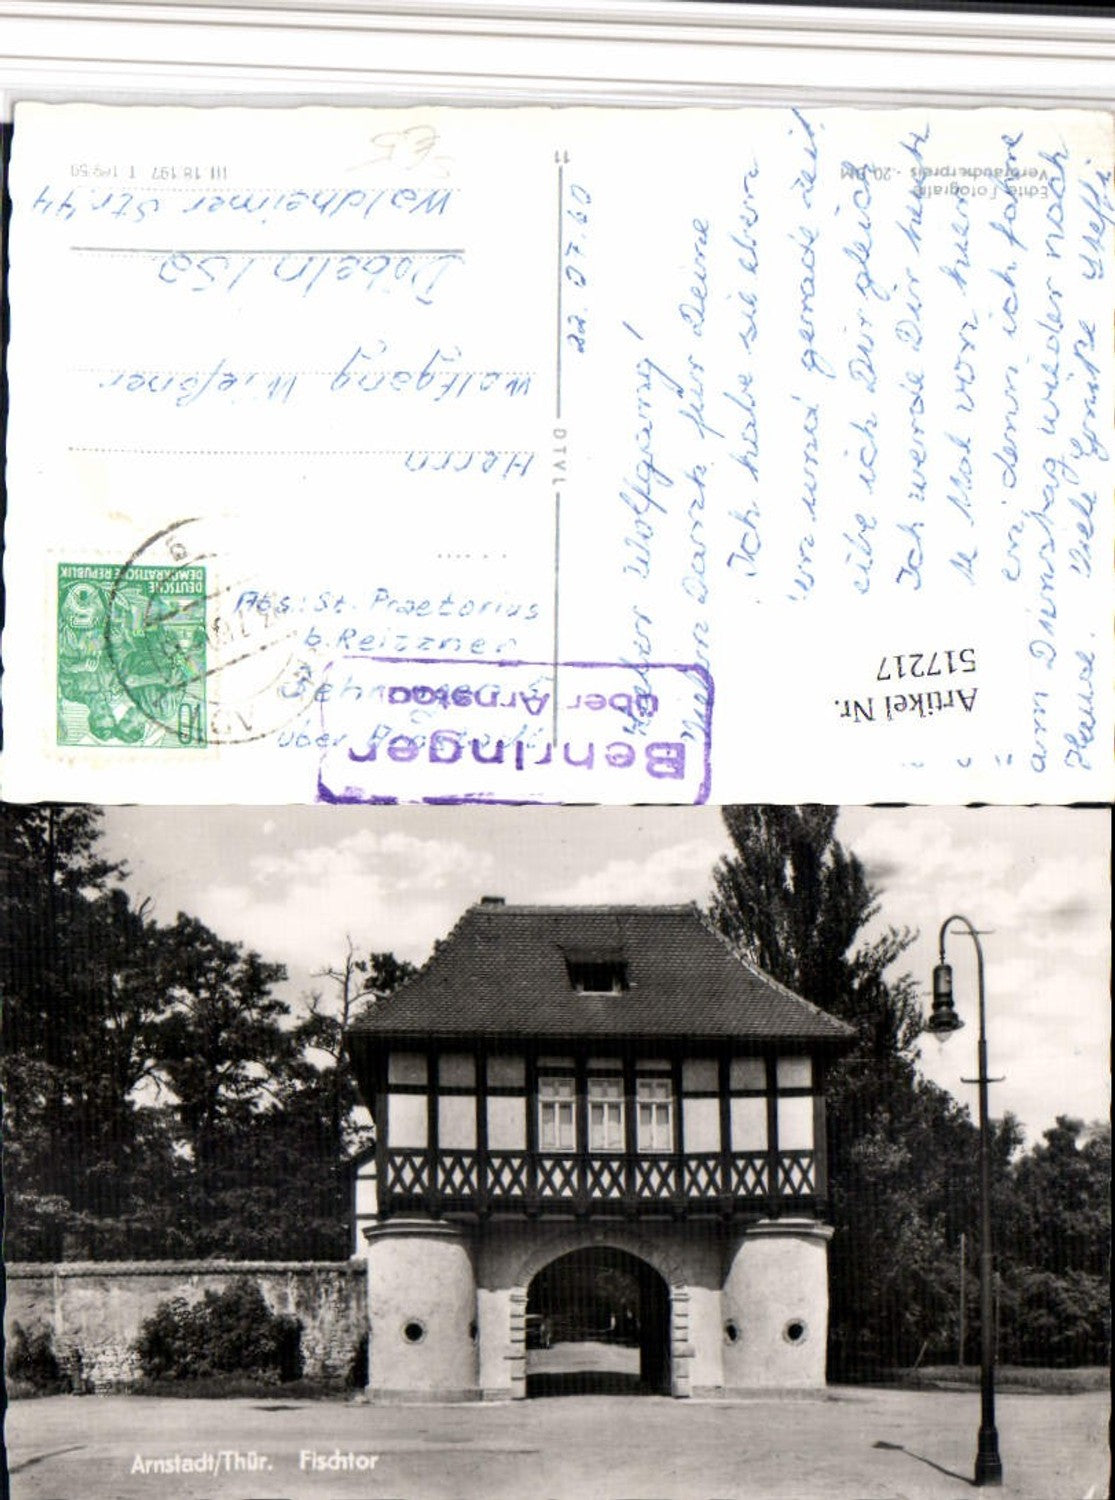 22.07.60
Lieber Wolfgang!
Vielen Dank für Deine
Ich habe sie eben
und gerade Zeit
ich Dir gleich
Ich werde Dir heute
Mal von hier
denn ich fahre
am Dienstag wieder nach
Haus. Viele Grüße Steffi
Echte Fotografie
Verbraucherpreis - 20 DM
III 18 197
Herrn
Wolfgang Wießner
Döbeln / Sa
Waldheimer Str. 44
DTVL
Abs.: St. Praetorius
b. Reitzner
über
Behringen
über Arnstadt
DEUTSCHE
DEMOKRATISCHE REPUBLIK
5
10
Artikel Nr.
517217
Arnstadt/Thür. Fischtor